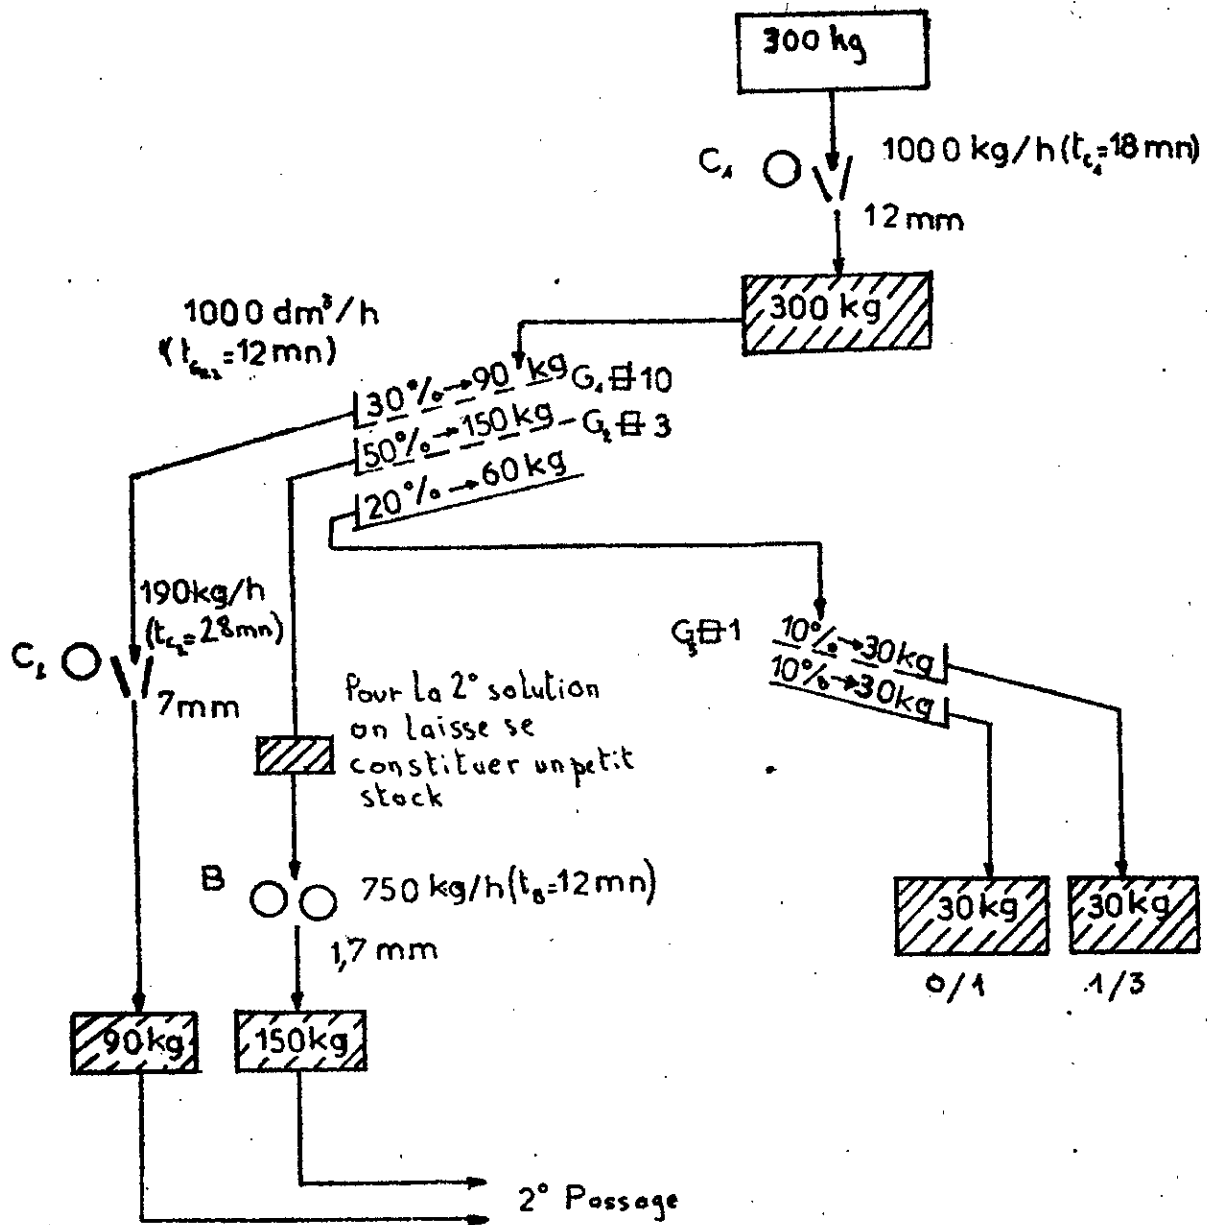 300 kg
C₁ 1000 kg/h (t_c₁=18 mn)
12 mm
300 kg
1000 dm³/h
(t_G₁,₂=12 mn)
30% → 90 kg G₁ 10
50% → 150 kg G₂ 3
20% → 60 kg
190 kg/h
(t_c₂=28mn)
C₂
7mm
G₃ 1
10% → 30 kg
10% → 30 kg
Pour la 2° solution
on laisse se
constituer un petit
stock
B 750 kg/h (t_B=12 mn)
1,7 mm
30 kg 30 kg
0/1 1/3
90 kg 150 kg
2° Passage